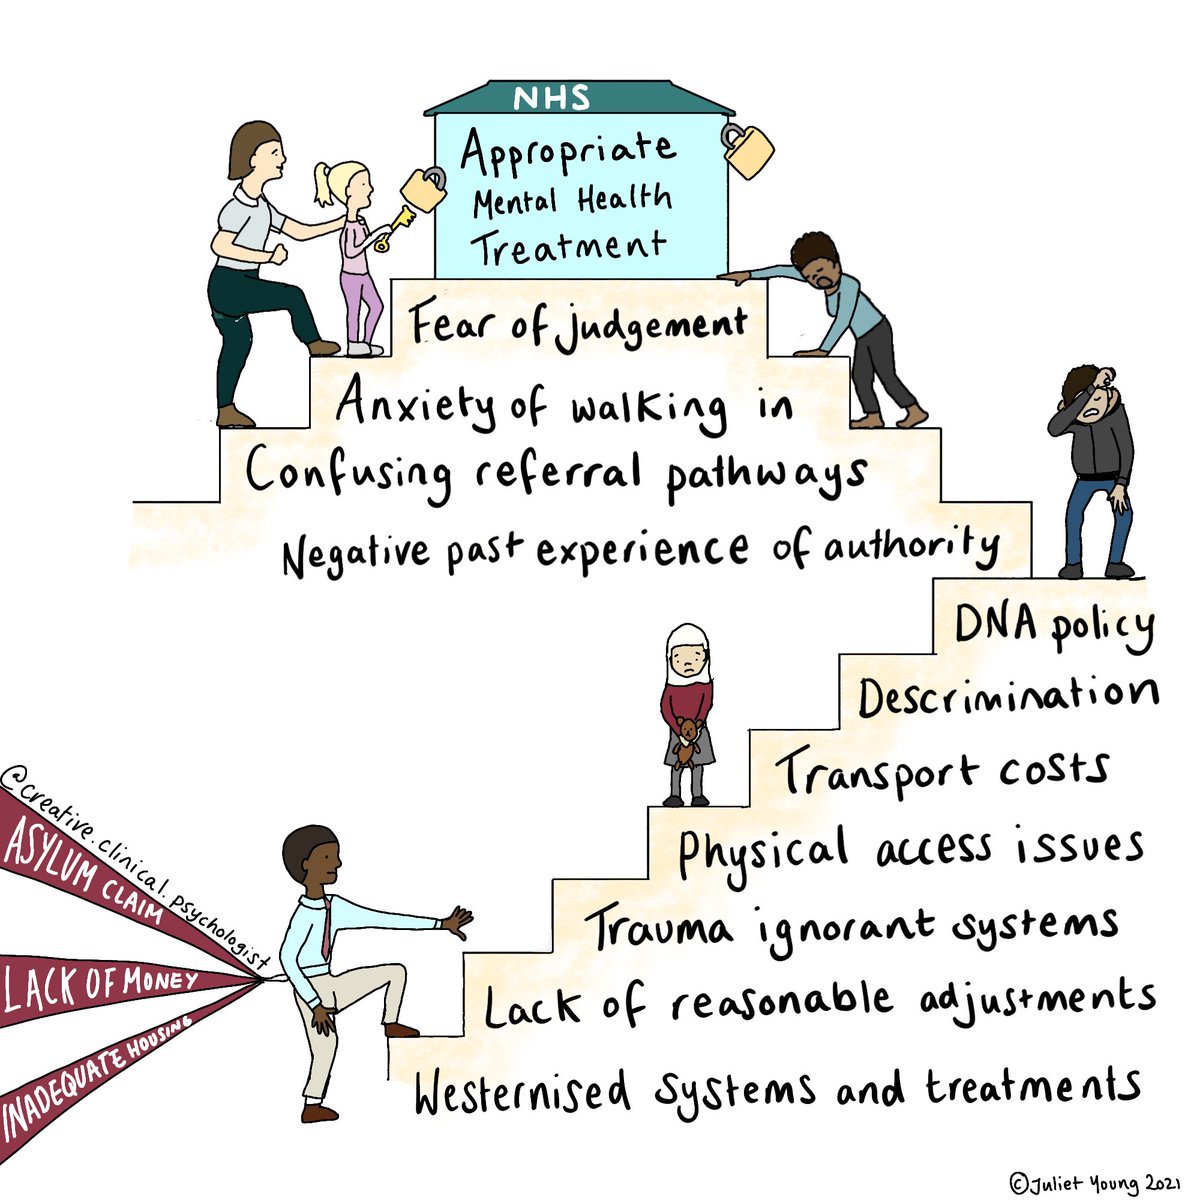 NHS
Appropriate
Mental Health
Treatment
Fear of judgement
Anxiety of walking in
Confusing referral pathways
Negative past experience of authority
DNA policy
Descrimination
Transport costs
Physical access issues
Trauma ignorant systems
Lack of reasonable adjustments
Westernised systems and treatments
@creative.clinical.psychologist
ASYLUM CLAIM
LACK OF MONEY
INADEQUATE HOUSING
©Juliet Young 2021